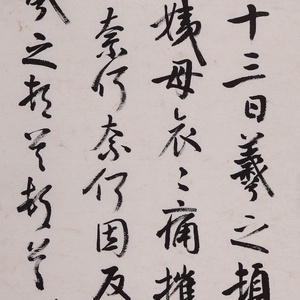 十三日羲之頓
姨母哀〻痛摧
奈何奈何因反
羲之頓首頓首